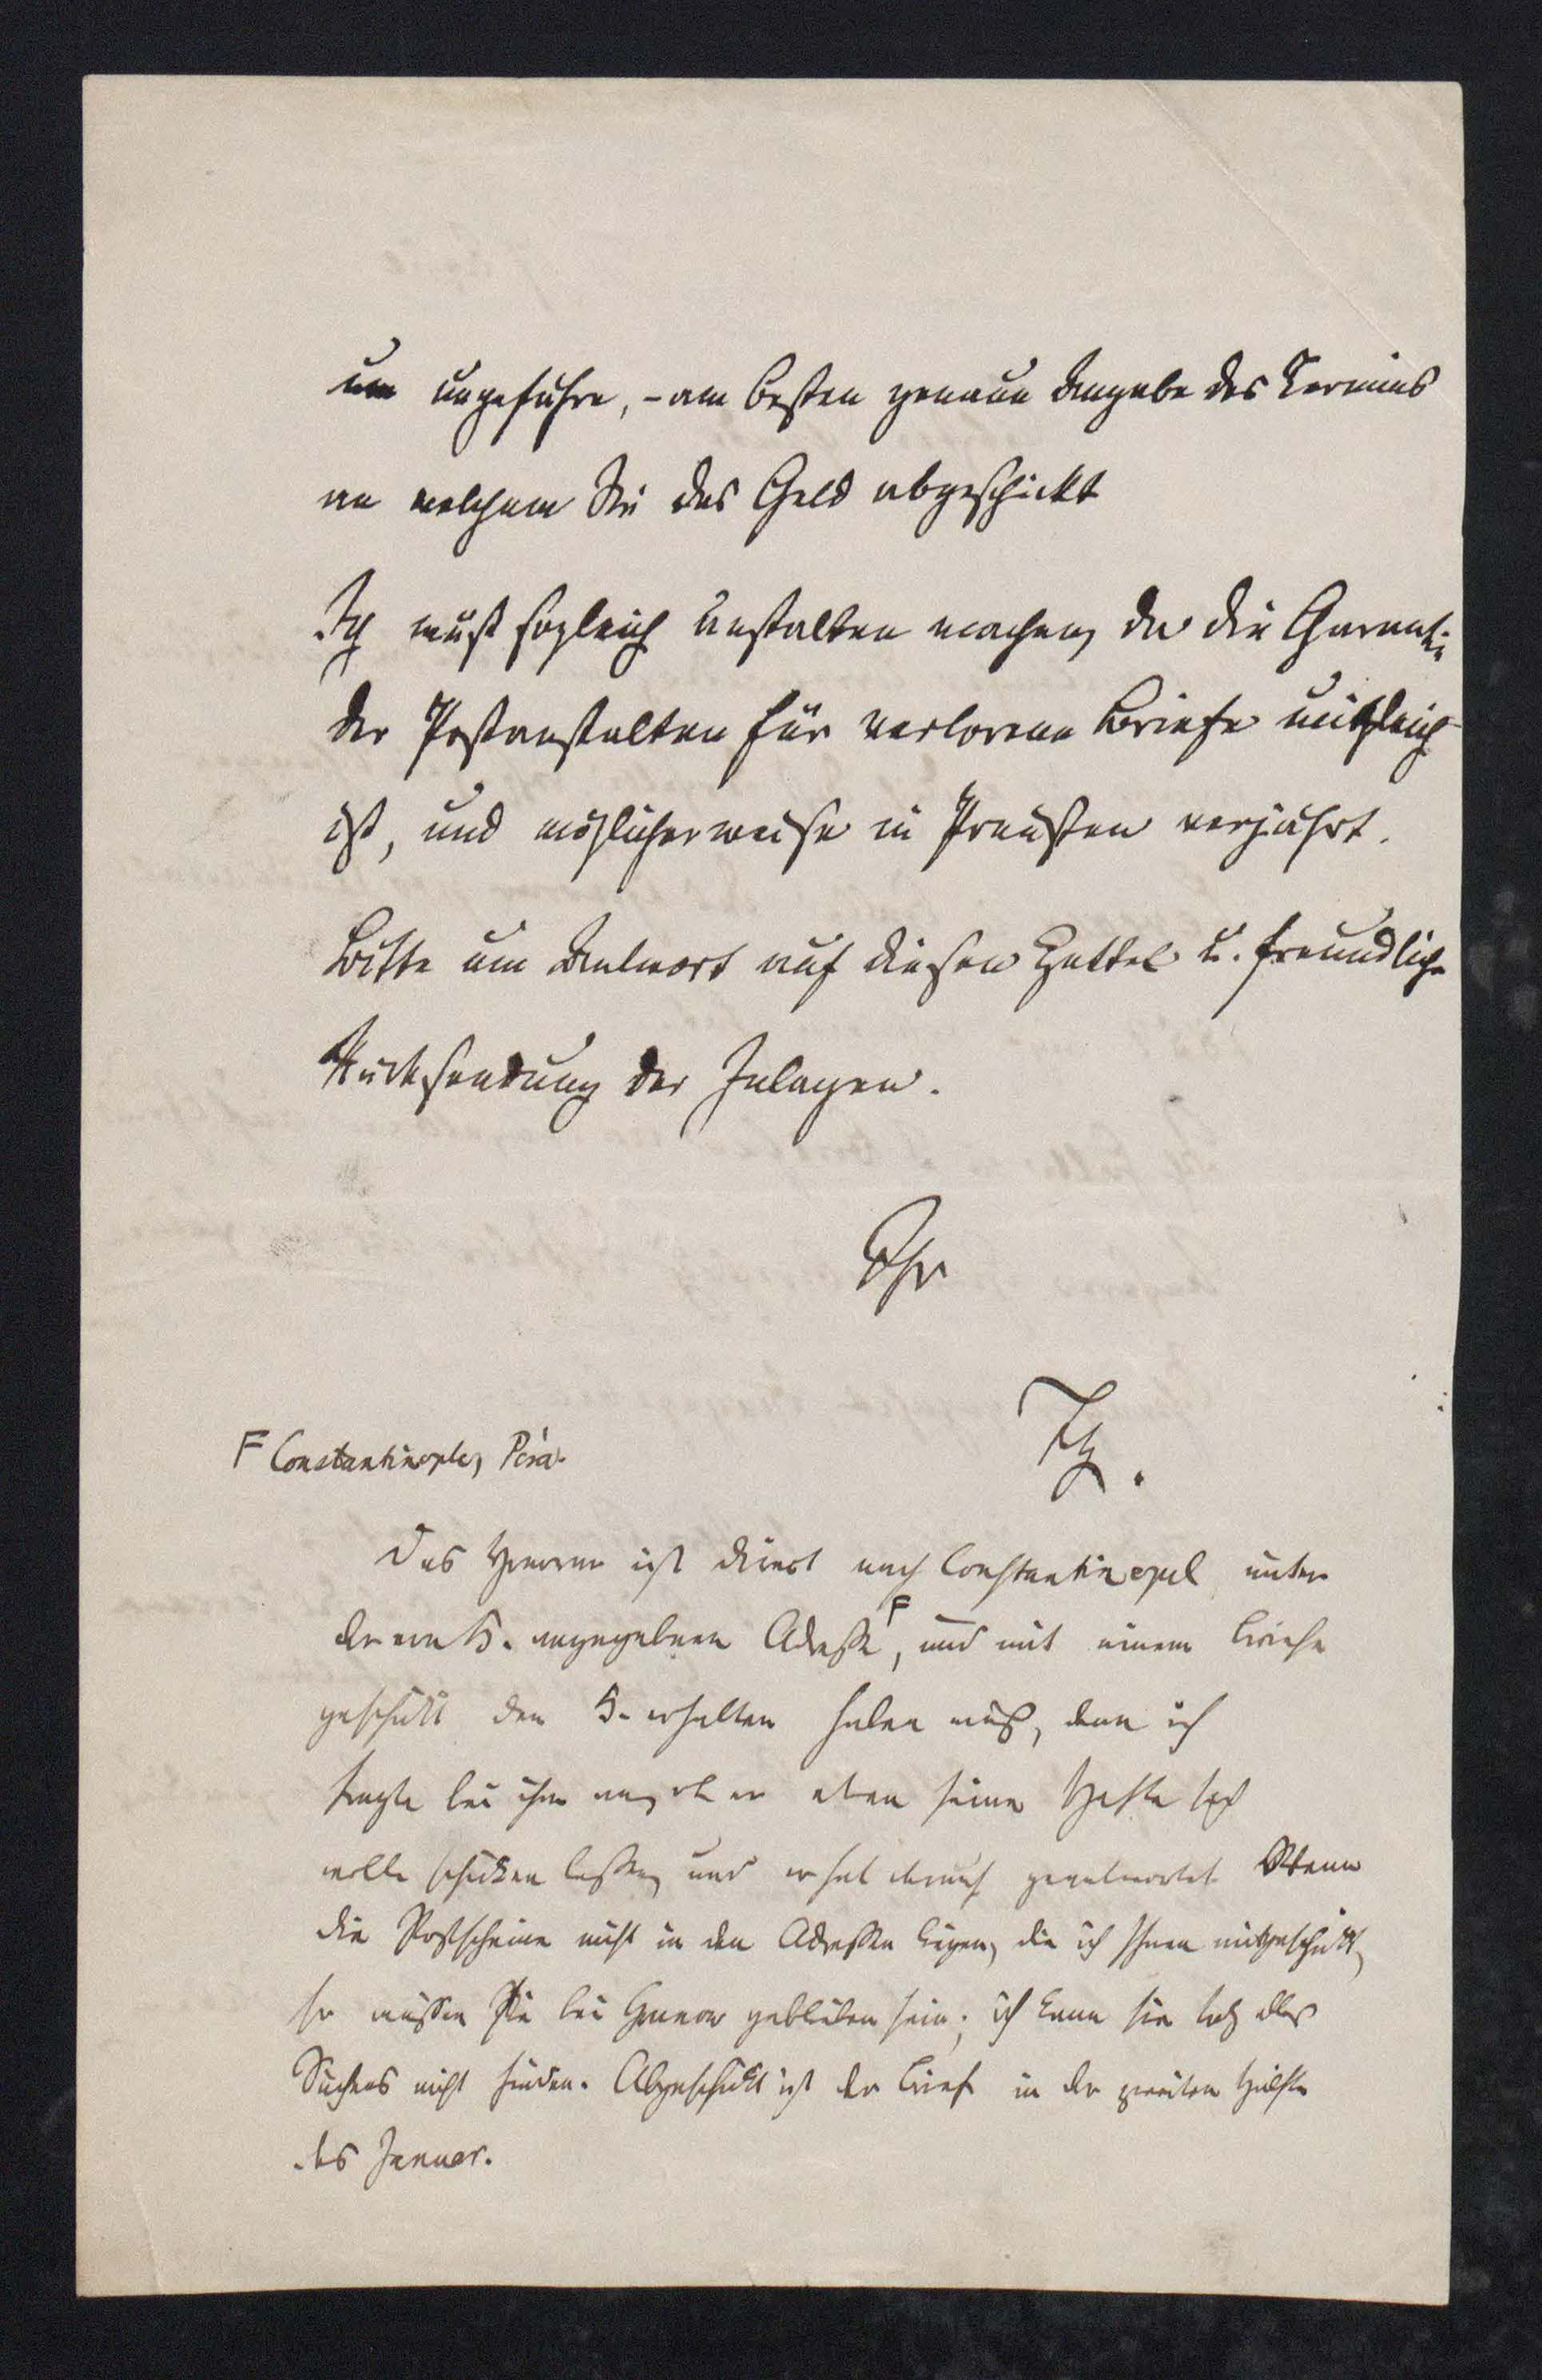 um ungefähre, – am besten genaue Angabe des Termins
an welchem Sie das Geld abgeschickt
Ich muß sogleich anstalten machen, da die Garantie
der Postanstalten für verlorene Briefe
ist, und möglicherweise in Preußen verjährt.
Bitte um Antwort auf diesen Zettel u. freundliche
Rücksendung der Inlagen.
Ihr
F Constantinople, Péra.
Das Honorar ist direct nach Constantinopel unter
der von H. angegebenen Adresse F, und mit einem Briefe
geschickt den H. erhalten haben muß, denn ich
fragte bei ihm an, ob er etwa seine Hefte sich
wolle schicken lassen, und er hat darauf geantwortet. Wenn
die Postscheine nicht in den Adressen liegen, die ich Ihnen mitgeschickt,
so müssen sie bei Grunow geblieben sein; ich kann sie trotz alles
Suchens nicht finden. Abgeschickt ist der Brief in der zweiten Hälfte
des Januar.